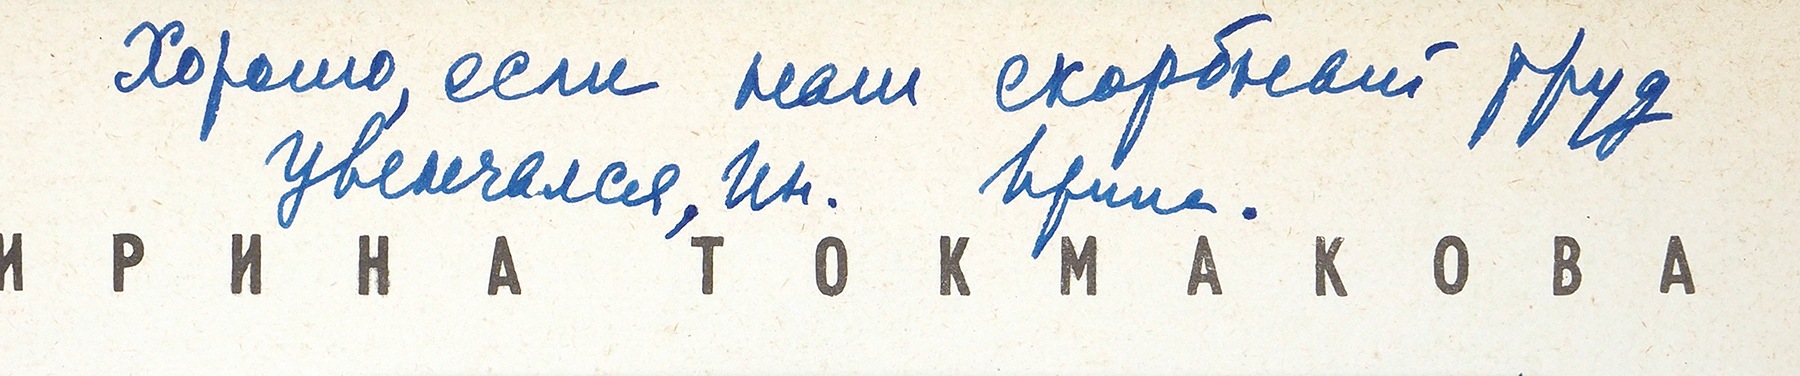 Хорошо, если наш скорбный труд
увенчался, Ин. Ирина.
ИРИНА ТОКМАКОВА